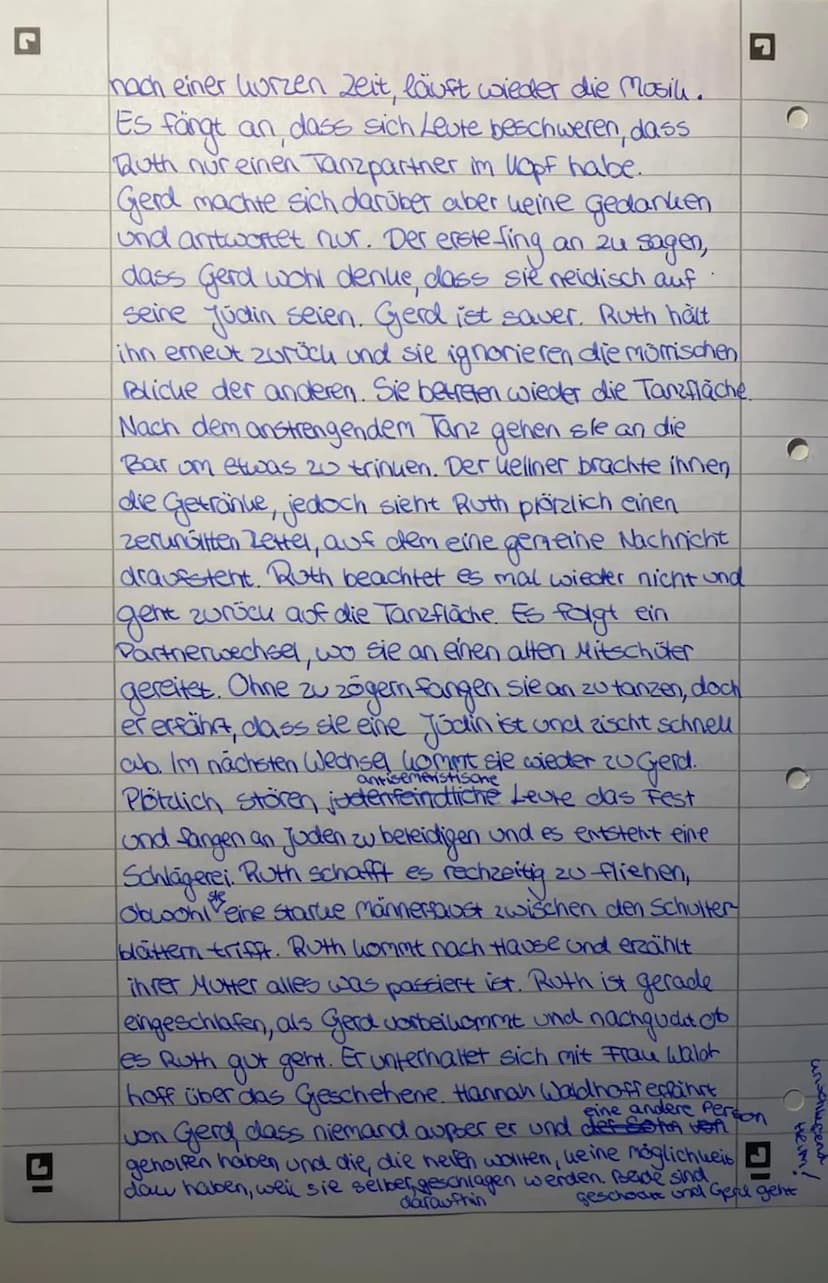 nach einer kurzen Zeit, läuft wieder die Musik.
Es fängt an, dass sich Leute beschweren, dass
Ruth nur einen Tanzpartner im Kopf habe.
Gerd machte sich darüber aber keine gedanken
und antwortet nur. Der erste fing an zu sagen,
dass Gerd wohl denke, dass sie neidisch auf
seine Jüdin seien. Gerd ist sauer. Ruth hält
ihn erneut zurück und sie ignorieren die mürrischen
Blicke der anderen. Sie betreten wieder die Tanzfläche.
Nach dem anstrengendem Tanz gehen sie an die
Bar um etwas zu trinken. Der Kellner brachte ihnen
die Getränke, jedoch sieht Ruth plötzlich einen
zerknüllten Zettel, auf dem eine gemeine Nachricht
draufsteht. Ruth beachtet es mal wieder nicht und
geht zurück auf die Tanzfläche. Es folgt ein
Partnerwechsel, wo sie an einen alten Mitschüler
gereitet. Ohne zu zögern fangen sie an zu tanzen, doch
er erfährt, dass sie eine Jüdin ist und zischt schnell
ab. Im nächsten Wechsel kommt sie wieder zu Gerd.
antisemetistische
Plötzlich stören judenfeindliche Leute das Fest
und fangen an Juden zu beleidigen und es entsteht eine
Schlägerei. Ruth schafft es rechzeitig zu fliehen,
obwohl sie eine starke Männerfaust zwischen den Schulter-
blättern trifft. Ruth kommt nach Hause und erzählt
ihrer Mutter alles was passiert ist. Ruth ist gerade
eingeschlafen, als Gerd vorbeikommt und nachguckt ob
es Ruth gut geht. Er unterhaltet sich mit Frau Wald
hoff über das Geschehene. Hannah Waldhoff erfährt
eine andere Person
von Gerd, dass niemand außer er und der Sohn von
geholfen haben und die, die helfen wollten, keine möglichkeit
dazu haben, weil sie selber geschlagen werden. Beide sind
daraufhin geschockt und Gerd geht
unschlüssend
Heim!